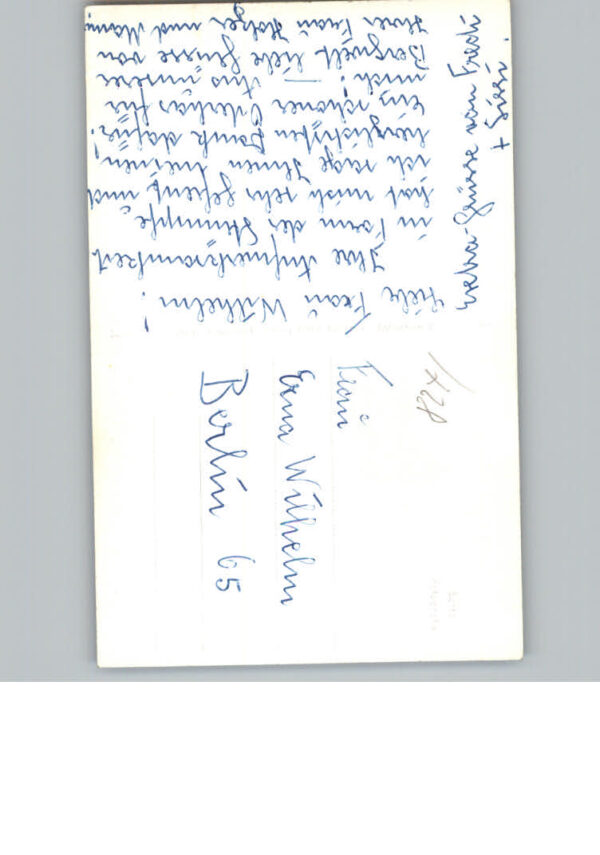 Liebe Frau Wilhelm!
Ihre Aufmerksamkeit
in Form der Strümpfe,
hat mich sehr gefreut und
ich sage Ihnen meinen
herzlichsten Dank dafür!
Ein schöner Osterhas für
mich! Aus unserer
Bergwelt liebe Grüsse von
Ihrer Frau Holzer und Mann.
Extra-Grüsse vom Fredi
+ Sissi!
Frau
Erna Wilhelm
Berlin 65